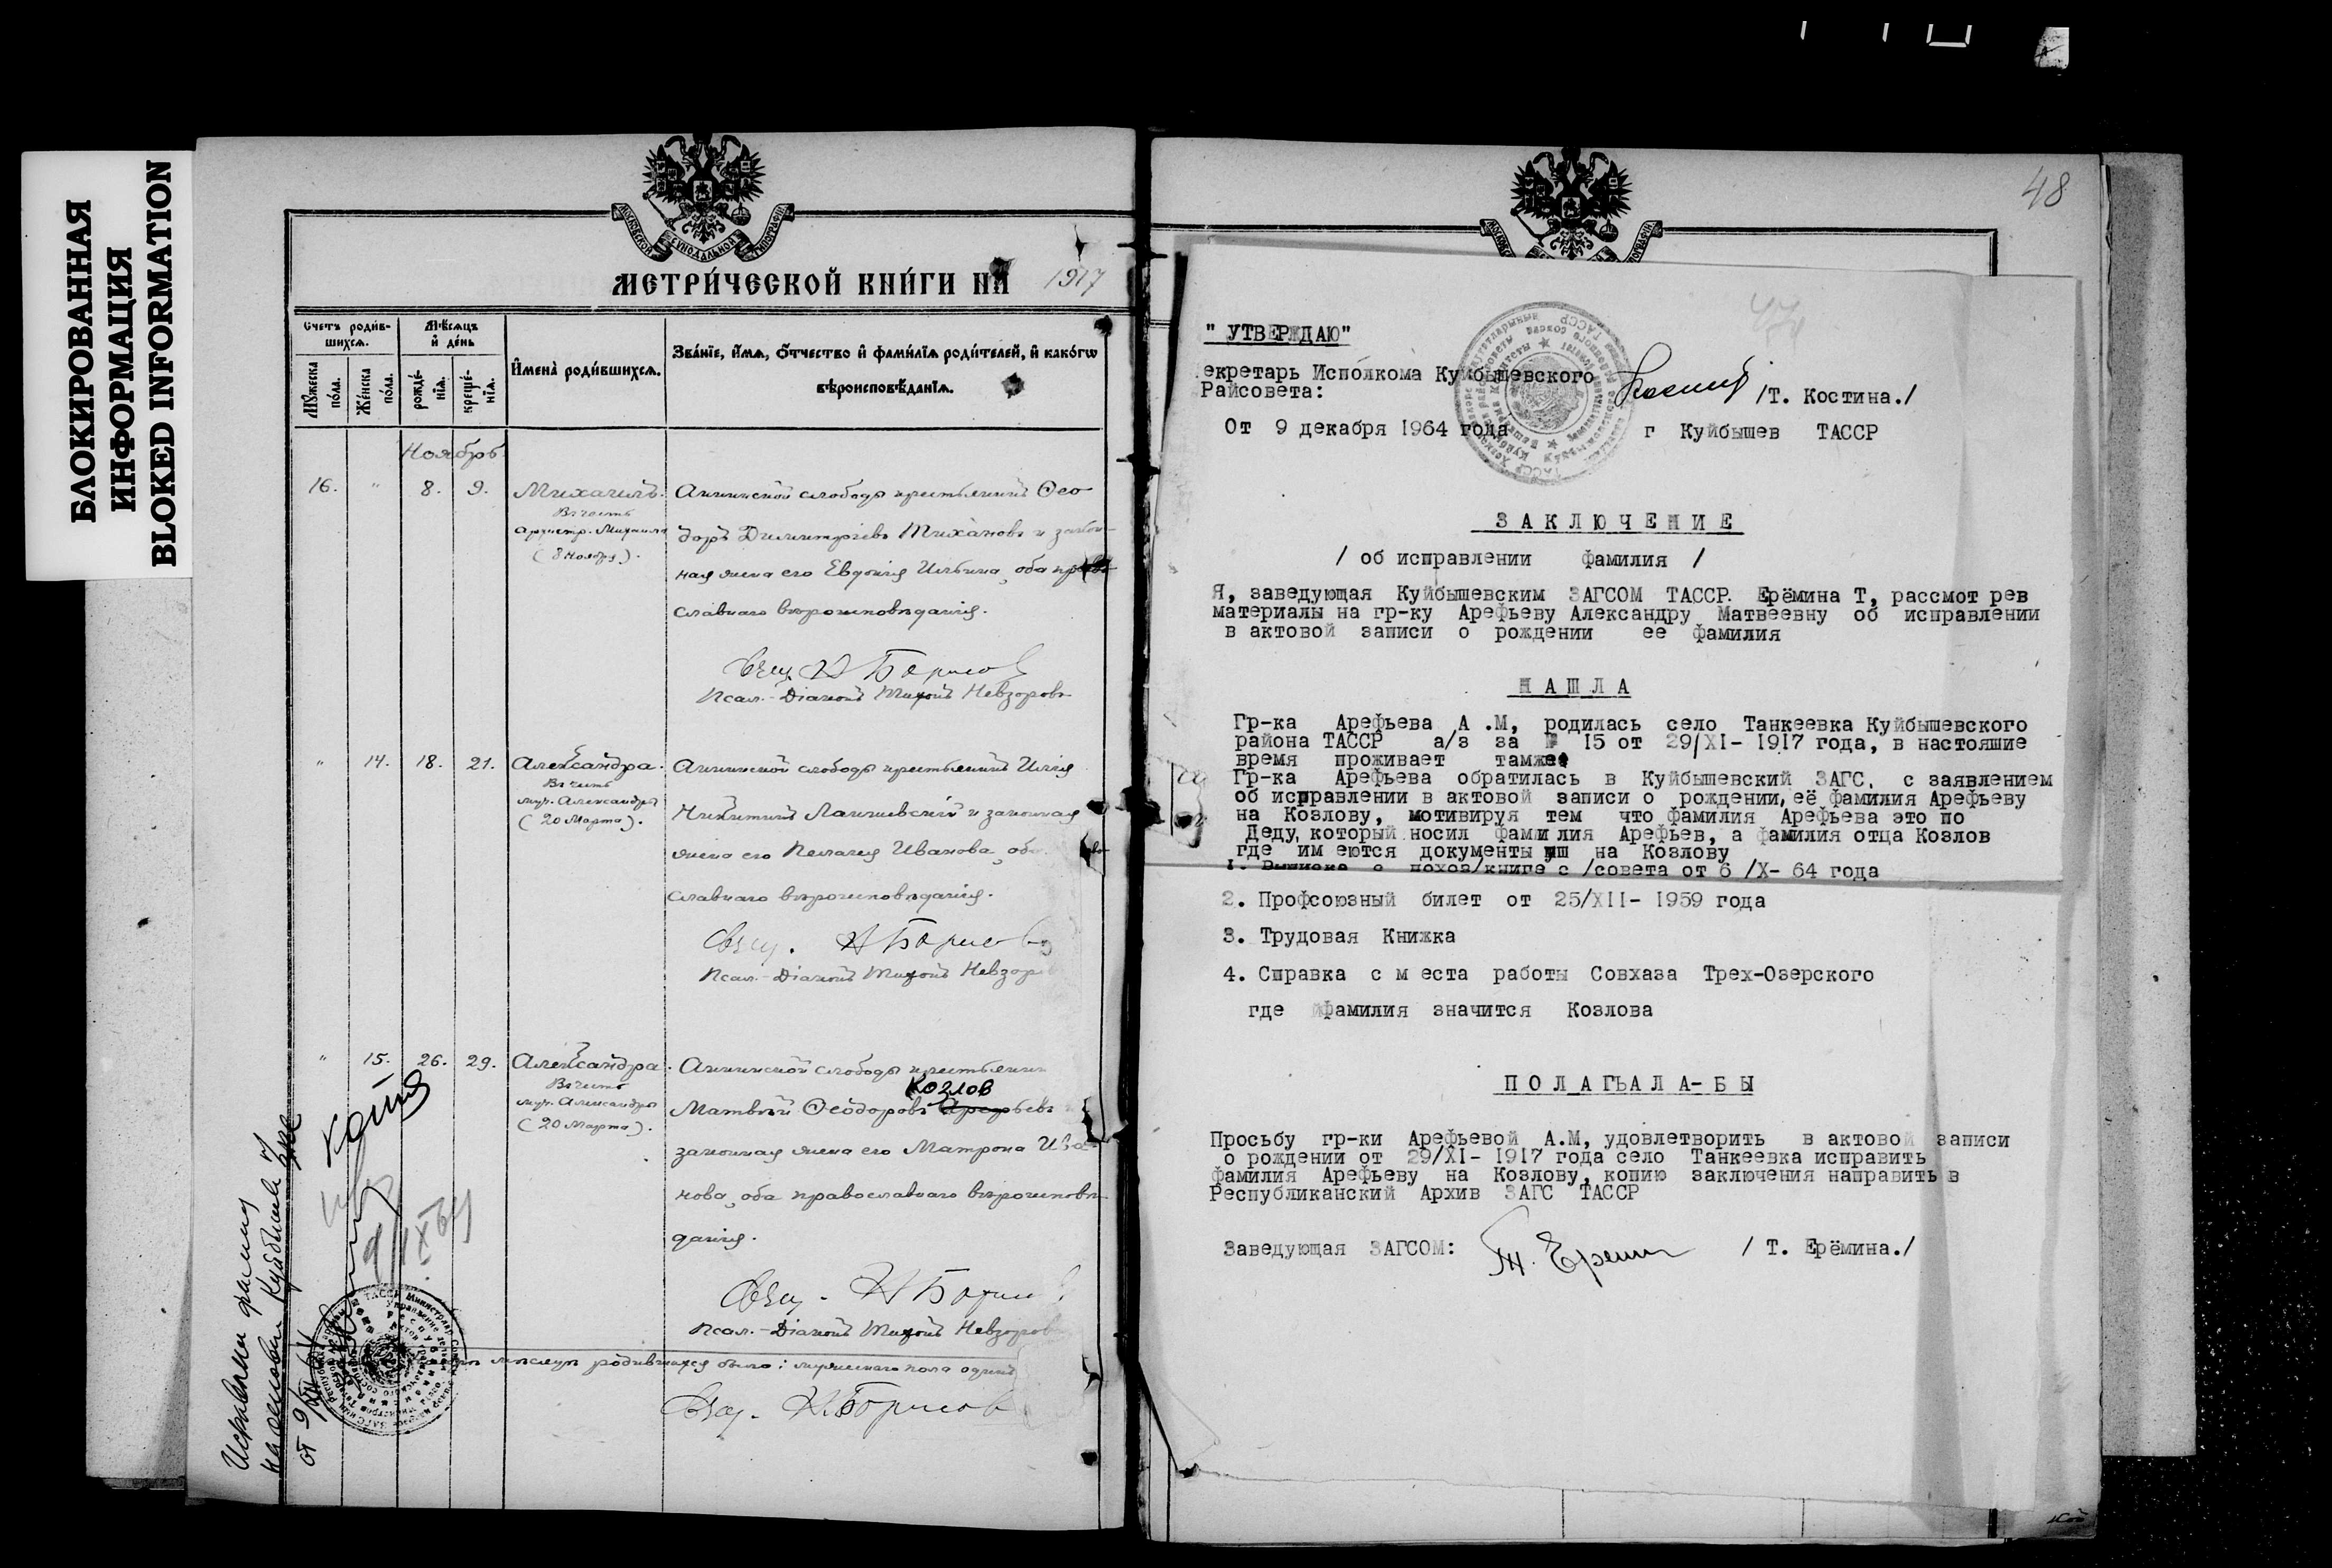 БЛОКИРОВАННАЯ
ИНФОРМАЦИЯ
BLOKED INFORMATION
МОСКОВСКОЙ СУНОДАЛЬНОЙ ТИПОГРАФІИ
МЕТРИ́ЧЕСКОЙ КНИ́ГИ НА 1917
Счетъ роди́в-
шихся.
Мѣсяцъ
и҆ де́нь
И҆мена̀ роди́вшихся.
Зва́нїе, и҆́мя, ѻ҆́тчество и҆ фами́лїя роди́телей, и҆ како́гѡ
вѣроисповѣ́данїя.
Мꙋжеска
по́ла.
Же́нска
по́ла.
рожде́-
нїя.
креще́-
нїя.
Ноябрь
16. " 8. 9. Михаилъ. Аннинской слободы крестьянинъ Ѳео-
Въ честь
архистр. Михаила
(8 Ноября).
доръ Димитріевъ Тихановъ и закон-
ная жена его Евдокія Ильина, оба право-
славнаго вѣроисповѣданія.
Свящ. Н Борисов
Псал.-Діаконъ Тихонъ Невзоровъ
" 14. 18. 21. Александра. Аннинской слободы крестьянинъ Илія
Въ честь
муч. Александры
(20 Марта).
Никитинъ Лаишевскій и законная
жена его Пелагія Иванова, оба
славнаго вѣроисповѣданія.
Свящ. Н Борисовъ
Псал.-Діаконъ Тихонъ Невзоров
" 15. 26. 29. Александра. Аннинской слободы крестьянин
Въ честь
муч. Александры
(20 Марта).
Козлов
Матвѣй Ѳеодоровъ Арефьевъ
законная жена его Матрона Ива-
нова, оба православнаго вѣроисповѣ-
данія.
Свящ. Н Борис
Псал.-Діаконъ Тихонъ Невзоров
мѣсяцѣ родившихся было: мужескаго пола одинъ
Свящ. Н. Борисов
Исправлена фамилия
на основании Куйбышев
от 9/XII 64
48
" УТВЕРЖДАЮ"
екретарь Исполкома Куйбышевского
Райсовета: /Т. Костина./
От 9 декабря 1964 года г Куйбышев ТАССР
ЗАКЛЮЧЕНИЕ
/ об исправлении фамилия /
Я, заведующая Куйбышевским ЗАГСОМ ТАССР. Ерёмина Т, рассмот рев
материалы на гр-ку Арефьеву Александру Матвеевну об исправлении
в актовой записи о рождении ее фамилия
НАШЛА
Гр-ка Арефьева А .М, родилась село Танкеевка Куйбышевского
района ТАССР а/з за № 15 от 29/XI- 1917 года, в настояшие
время проживает тамже
Гр-ка Арефьева обратилась в Куйбышевский ЗАГС. с заявлением
об исправлении в актовой записи о рождении, её фамилия Арефьеву
на Козлову, мотивируя тем что фамилия Арефьева это по
Деду, который носил фамилия Арефьев, а фамилия отца Козлов
где им еются документы на Козлову
1. Выписка с похоз/книге с /совета от 6 /X- 64 года
2. Профсоюзный билет от 25/XII- 1959 года
3. Трудовая Книжка
4. Справка с м еста работы Совхаза Трех-Озерского
где фамилия значится Козлова
ПОЛАГЬАЛА-БЫ
Просьбу гр-ки Арефьевой А.М, удовлетворить в актовой записи
о рождении от 29/XI- 1917 года село Танкеевка исправить
фамилия Арефьеву на Козлову, копию заключения направить в
Республиканский Архив ЗАГС ТАССР
Заведующая ЗАГСОМ: Т. Ерёмин / Т. Ерёмина./